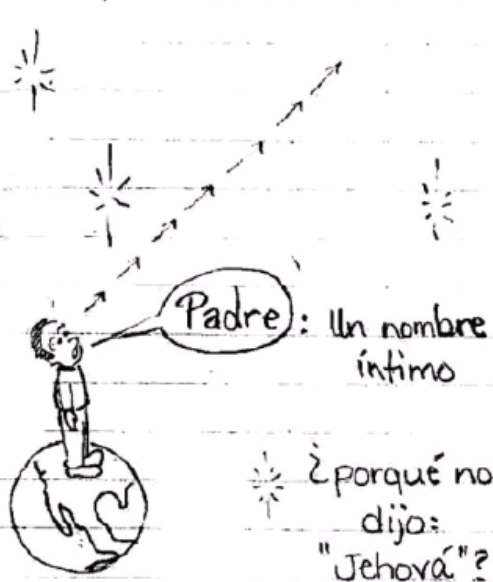 Padre: Un nombre
íntimo
¿porqué no
dijo:
"Jehová"?